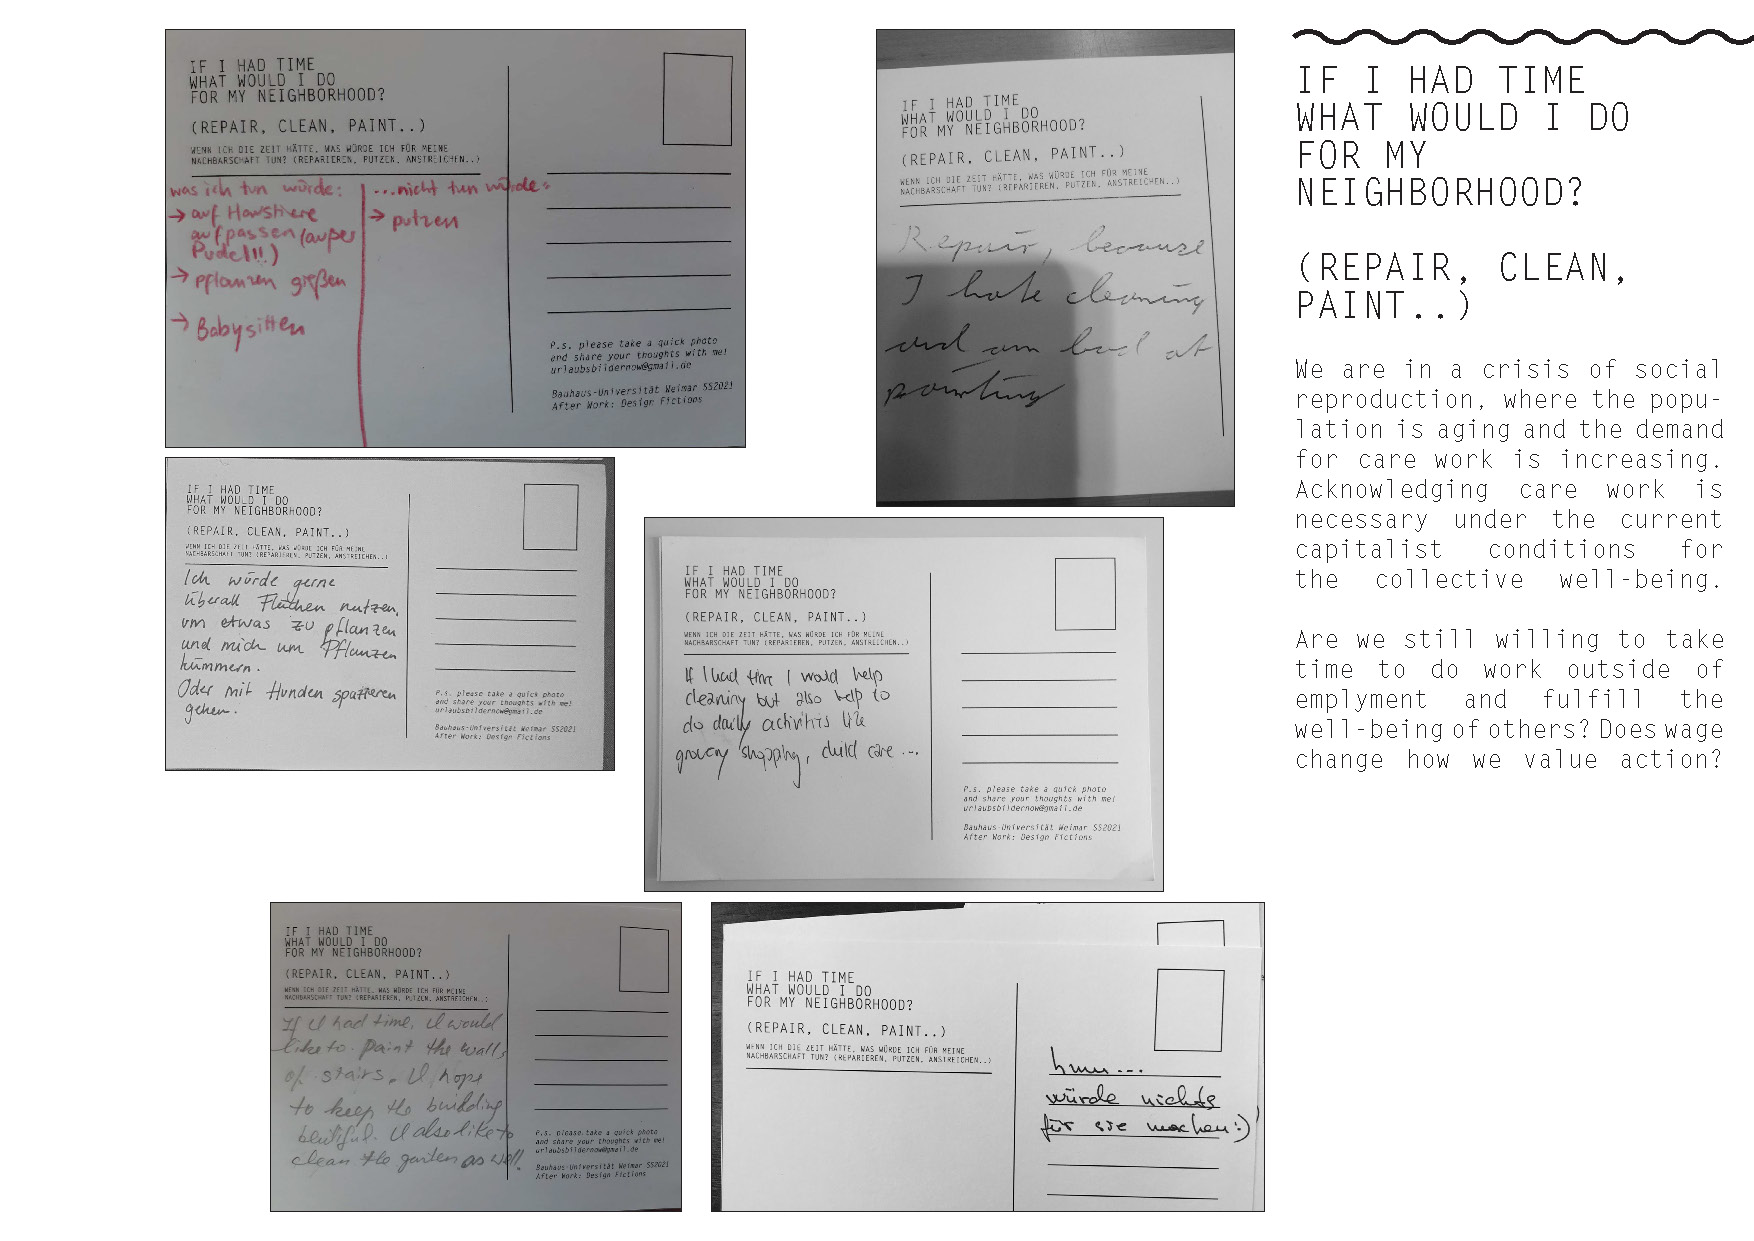 IF I HAD TIME
WHAT WOULD I DO
FOR MY NEIGHBORHOOD?
(REPAIR, CLEAN, PAINT..)
WENN ICH DIE ZEIT HÄTTE, WAS WÜRDE ICH FÜR MEINE
NACHBARSCHAFT TUN? (REPARIEREN, PUTZEN, ANSTREICHEN..)
was ich tun würde:
→ auf Haustiere
aufpassen (außer
Pudel!!!)
→ pflanzen gießen
→ Babysitten
...nicht tun würde:
→ putzen
P.s. please take a quick photo
and share your thoughts with me!
urlaubsbildernow@gmail.de
Bauhaus-Universität Weimar SS2021
After Work: Design Fictions
IF I HAD TIME
WHAT WOULD I DO
FOR MY NEIGHBORHOOD?
(REPAIR, CLEAN, PAINT..)
WENN ICH DIE ZEIT HÄTTE, WAS WÜRDE ICH FÜR MEINE
NACHBARSCHAFT TUN? (REPARIEREN, PUTZEN, ANSTREICHEN..)
Repair, because
I hate cleaning
and am bad at
painting
IF I HAD TIME
WHAT WOULD I DO
FOR MY NEIGHBORHOOD?
(REPAIR, CLEAN, PAINT..)
WENN ICH DIE ZEIT HÄTTE, WAS WÜRDE ICH FÜR MEINE
NACHBARSCHAFT TUN? (REPARIEREN, PUTZEN, ANSTREICHEN..)
Ich würde gerne
überall Flächen nutzen,
um etwas zu pflanzen
und mich um Pflanzen
kümmern.
Oder mit Hunden spatzieren
gehen.
P.s. please take a quick photo
and share your thoughts with me!
urlaubsbildernow@gmail.de
Bauhaus-Universität Weimar SS2021
After Work: Design Fictions
IF I HAD TIME
WHAT WOULD I DO
FOR MY NEIGHBORHOOD?
(REPAIR, CLEAN, PAINT..)
WENN ICH DIE ZEIT HÄTTE, WAS WÜRDE ICH FÜR MEINE
NACHBARSCHAFT TUN? (REPARIEREN, PUTZEN, ANSTREICHEN..)
If I had time I would help
cleaning but also help to
do daily activities like
grocery shopping, child care ...
P.s. please take a quick photo
and share your thoughts with me!
urlaubsbildernow@gmail.de
Bauhaus-Universität Weimar SS2021
After Work: Design Fictions
IF I HAD TIME
WHAT WOULD I DO
FOR MY NEIGHBORHOOD?
(REPAIR, CLEAN, PAINT..)
WENN ICH DIE ZEIT HÄTTE, WAS WÜRDE ICH FÜR MEINE
NACHBARSCHAFT TUN? (REPARIEREN, PUTZEN, ANSTREICHEN..)
If I had time, I would
like to paint the walls
of stairs. I hope
to keep the building
beutiful. I also like to
clean the garden as well.
P.s. please take a quick photo
and share your thoughts with me!
urlaubsbildernow@gmail.de
Bauhaus-Universität Weimar SS2021
After Work: Design Fictions
IF I HAD TIME
WHAT WOULD I DO
FOR MY NEIGHBORHOOD?
(REPAIR, CLEAN, PAINT..)
WENN ICH DIE ZEIT HÄTTE, WAS WÜRDE ICH FÜR MEINE
NACHBARSCHAFT TUN? (REPARIEREN, PUTZEN, ANSTREICHEN..)
hmm...
würde nichts
für sie machen:)
IF I HAD TIME
WHAT WOULD I DO
FOR MY
NEIGHBORHOOD?
(REPAIR, CLEAN,
PAINT..)
We are in a crisis of social
reproduction, where the popu-
lation is aging and the demand
for care work is increasing.
Acknowledging care work is
necessary under the current
capitalist conditions for
the collective well-being.
Are we still willing to take
time to do work outside of
emplyment and fulfill the
well-being of others? Does wage
change how we value action?